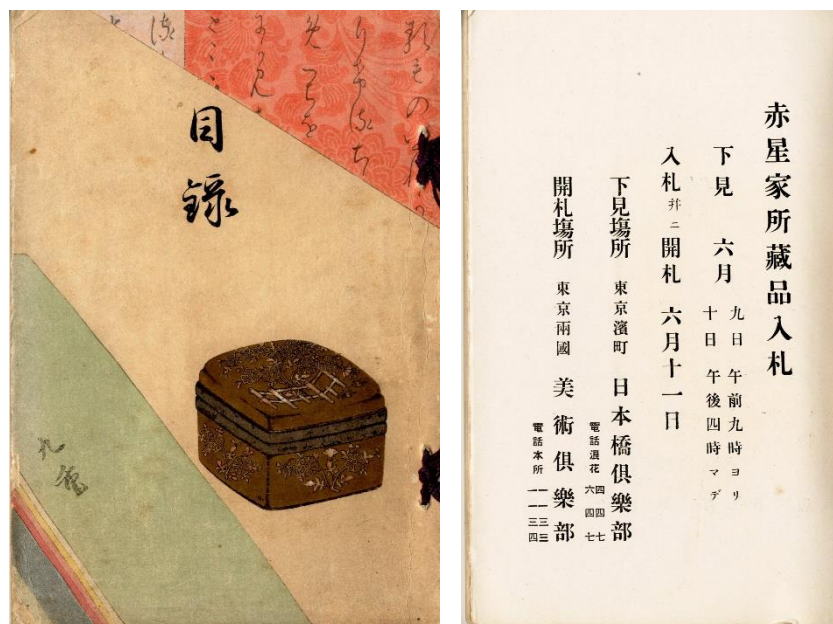 目錄
赤星家所藏品入札
下見 六月 九日 午前九時ヨリ
十日 午後四時マデ
入札并ニ開札 六月十一日
下見塲所 東京濱町 日本橋倶樂部
電話浪花 四四七
六四七
開札塲所 東京兩國 美術倶樂部
電話本所 一一三三
一一三四